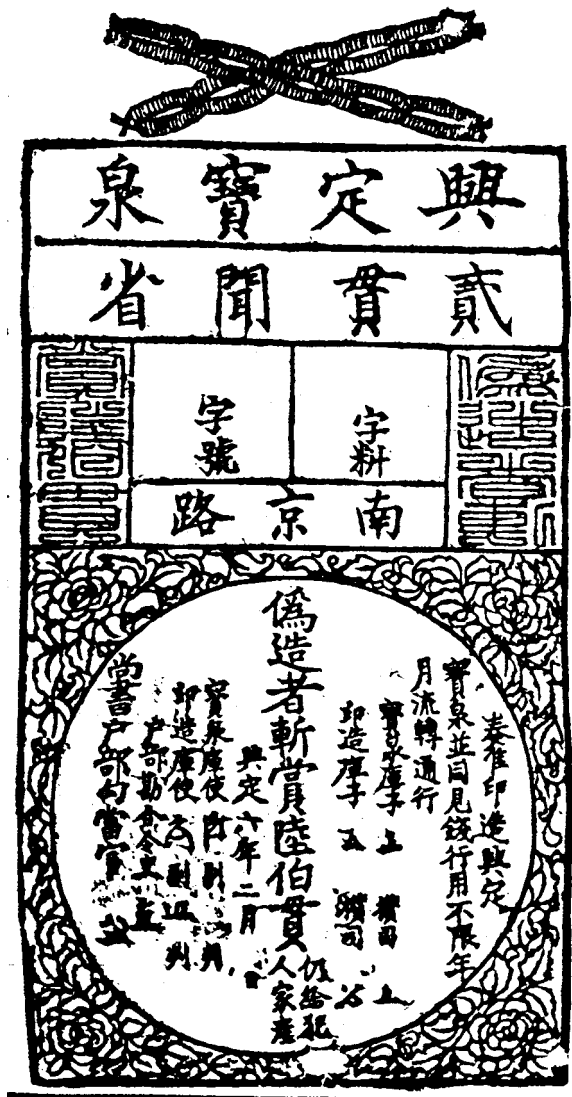 興定寶泉
貳貫聞省
偽造者斬
字料
字號
南京路
奏准印造興定
寶泉並同見錢行用不限年
月流轉通行
寶泉庫子 攢司
印造庫子 攢司
偽造者斬賞陸伯貫
仍給犯
人家產
興定六年二月 日
寶泉庫使 副 判
印造庫使 副 判
戶部勘會令史
尚書戶部勾當官